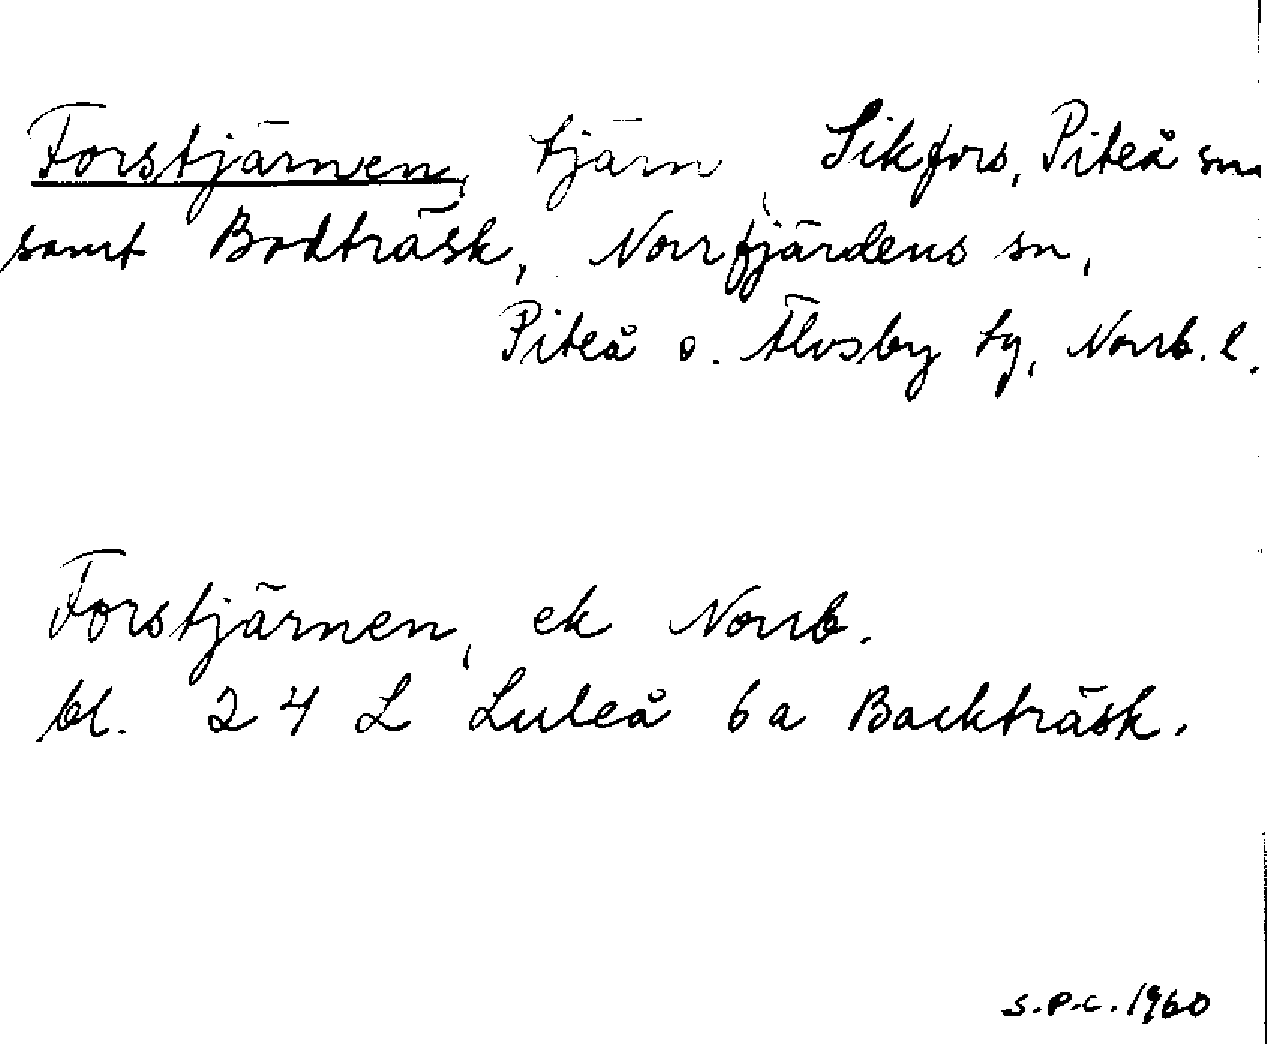 Forstjärnen, tjärn, Sikfors, Piteå sn
samt Bodträsk, Norrfjärdens sn,
Piteå o. Älvsby tg, Norrb. l.
Forstjärnen, ek Norrb.
bl. 24 L Luleå 6a Backträsk.
S.P.C. 1960